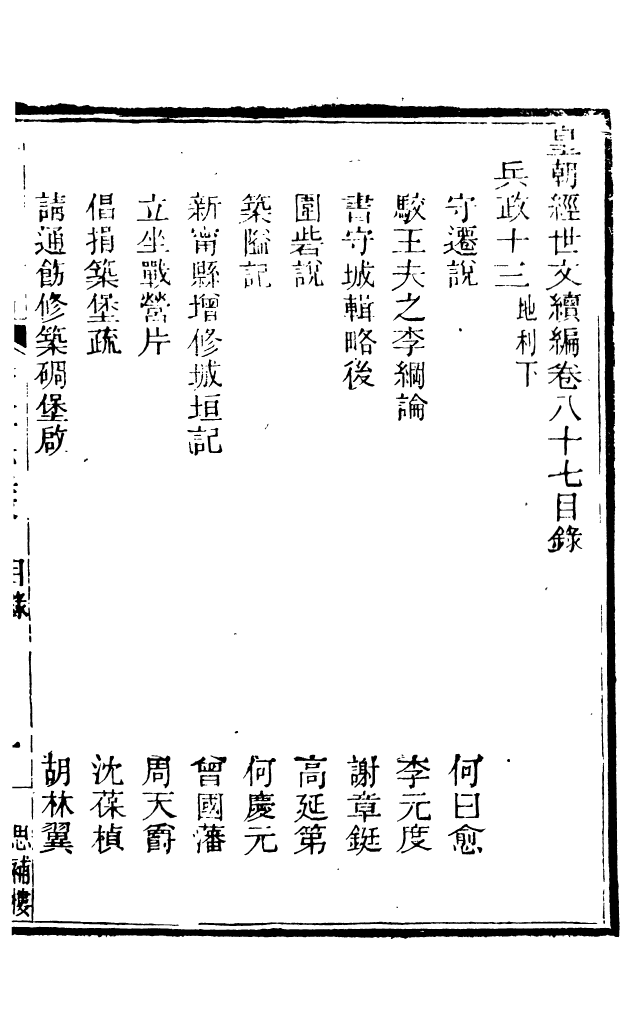 皇朝經世文續編卷八十七目錄
兵政十三 地利下
守邊說 何曰愈
駮王夫之李綱論 李元度
書守城輯略後 謝章鋌
團砦說 高延第
築隘記 何慶元
新甯縣增修城垣記 曾國藩
立坐戰營片 周天爵
倡捐築堡疏 沈葆楨
請通飭修築碉堡啟 胡林翼
目錄
一
思補樓